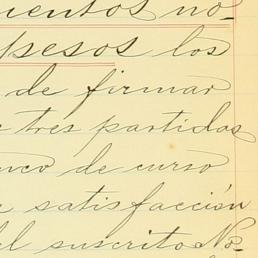 uentos no-
pesos los
de firmar
e tres partidas
nco de curso
e satisfacción
el suscrito No-